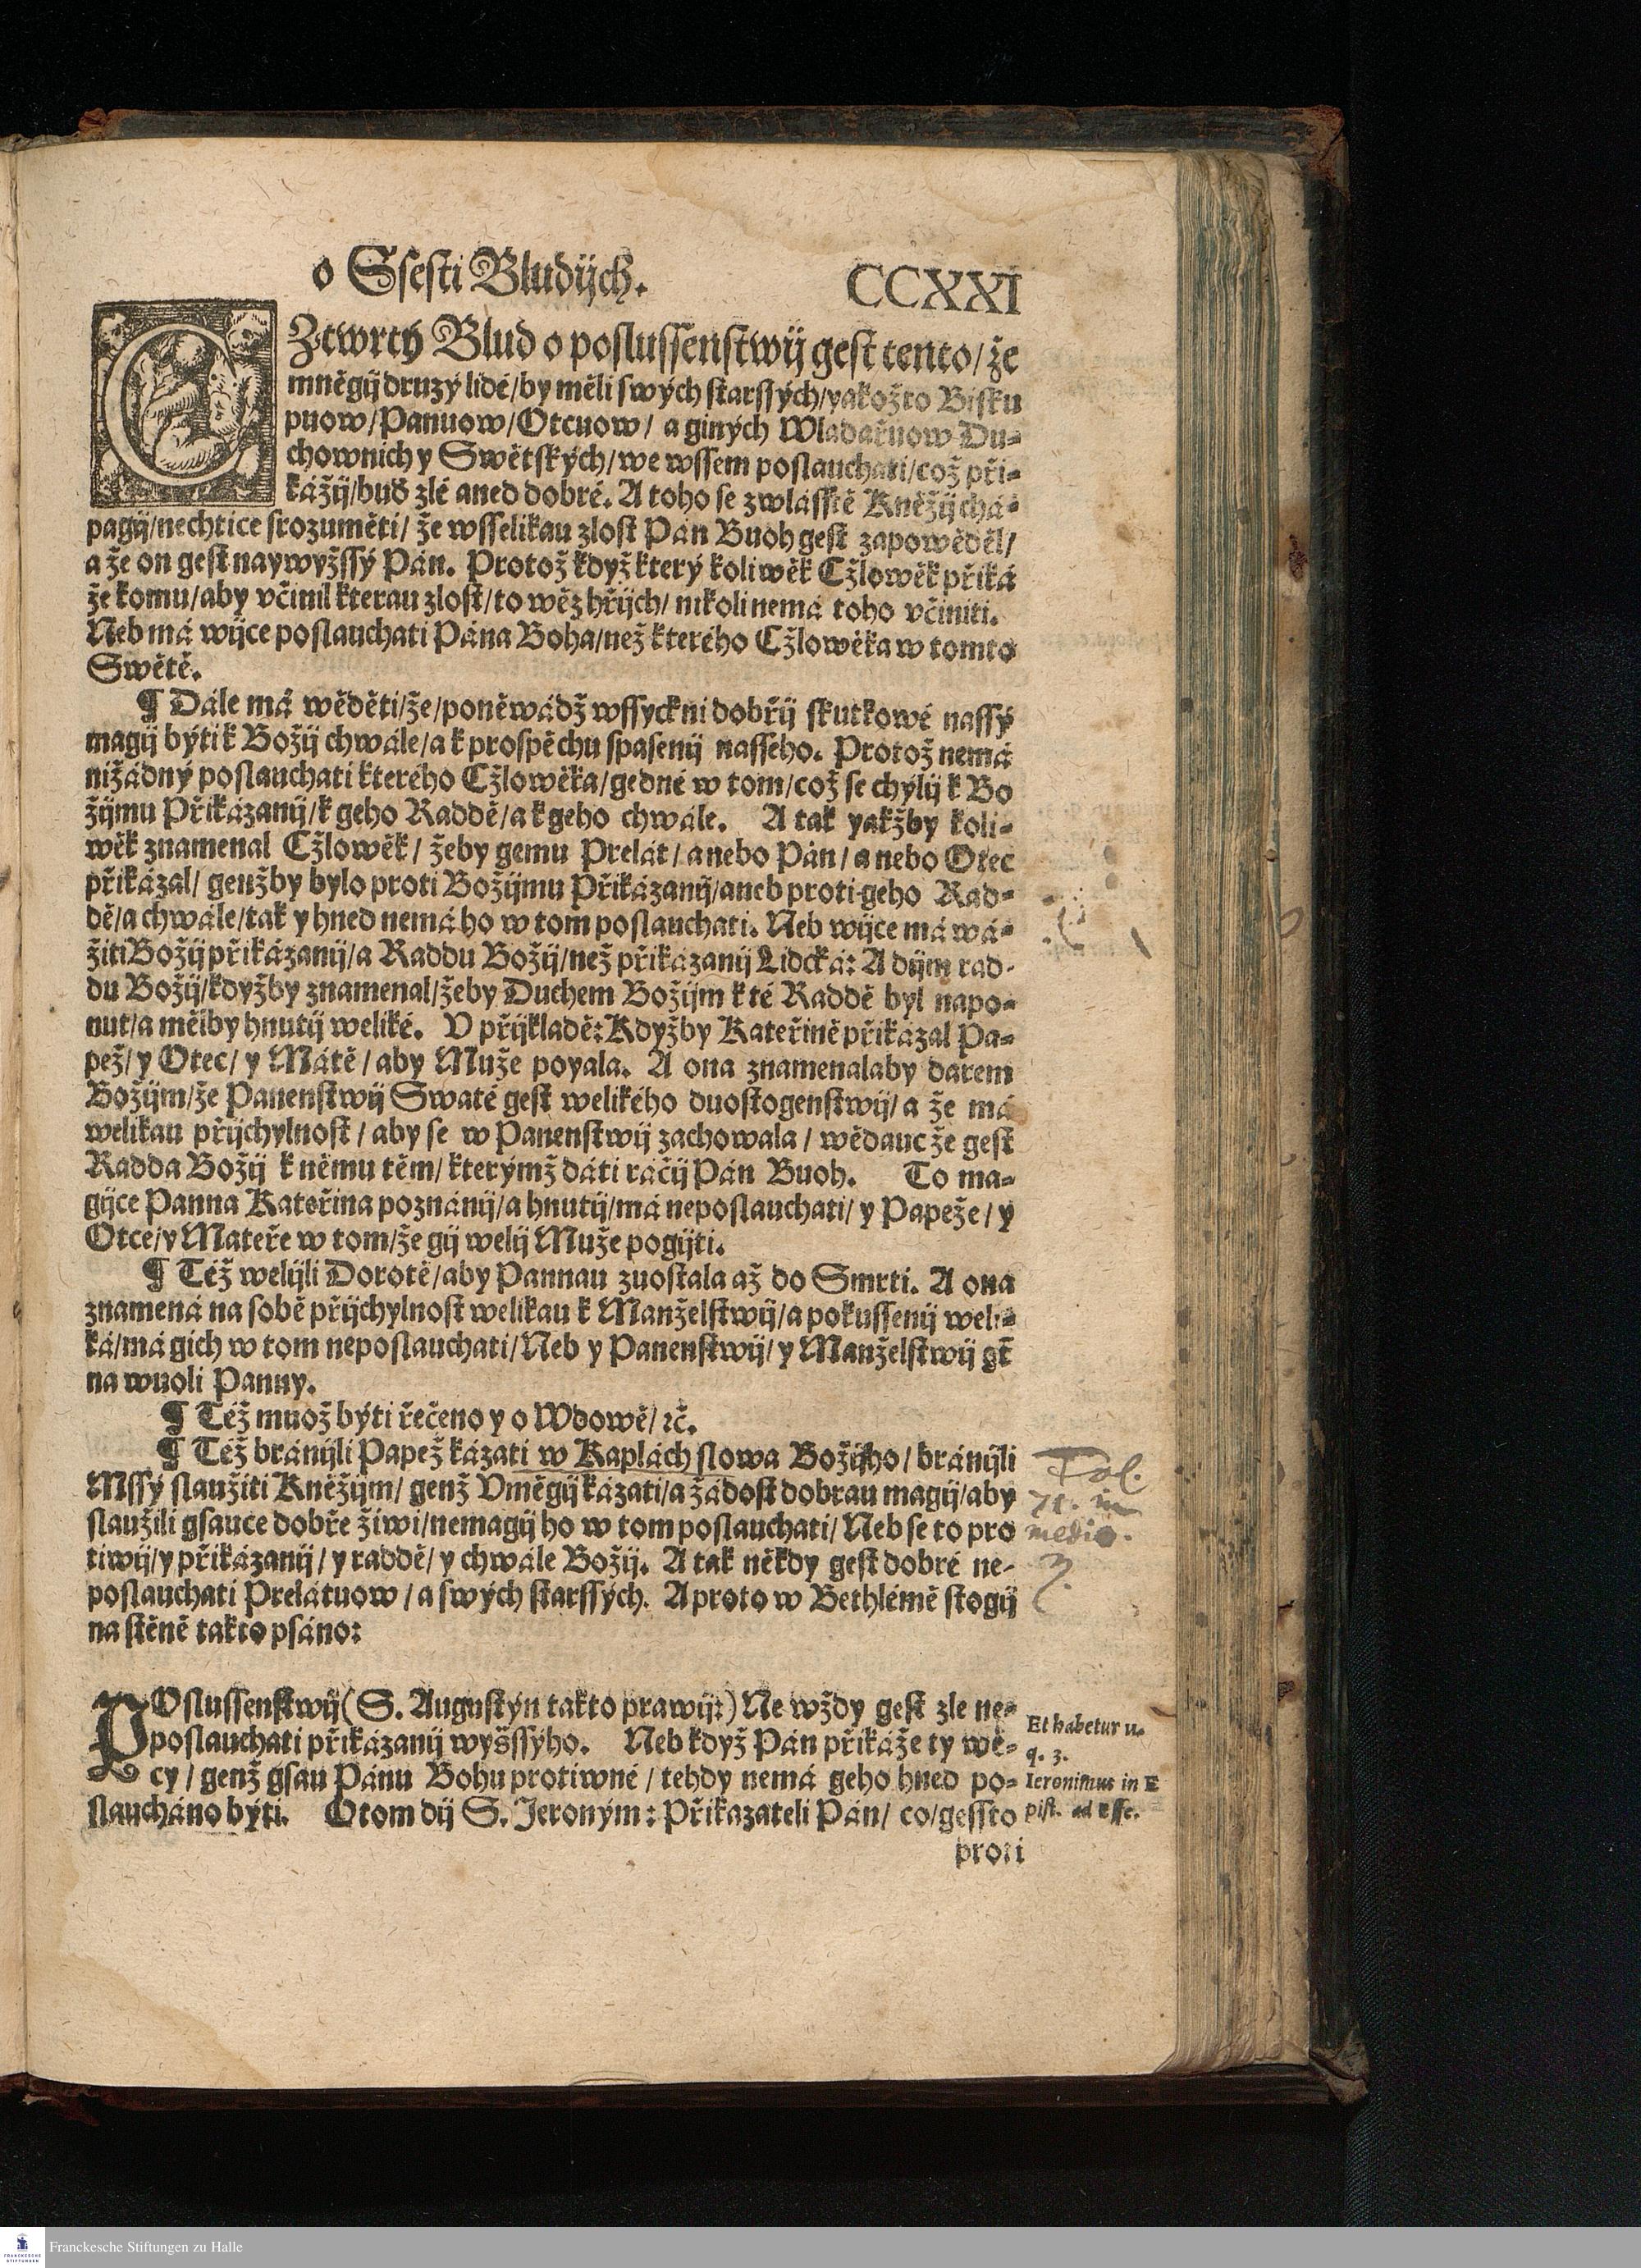 o Ssesti Bludijch. CCXXI
CZtwrtý Blud o poslussenstwij gest tento/ že
mněgij druzý lidé/by měli swých starssých/yakožto Bisku
puow/Panuow/Otcuow/ a giných Wladařuow Du⸗
chownich y Swětských/we wssem poslauchati/což při⸗
kážij/buď zlé aned dobré. A toho se zwlásstě Kněžij chá⸗
pagij/nechtice srozuměti/ že wsselikau zlost Pán Buoh gest zapowěděl/
a že on gest naywyžssý Pán. Protož když který koliwěk Cžlowěk přiká
že komu/aby včinil kterau zlost/to wěz hřijch/ nikoli nemá toho včiniti.
Neb má wijce poslauchati Pána Boha/než kterého Cžlowěka w tomto
Swětě.
¶ Dále má wěděti/že/poněwádž wssyckni dobřij skutkowé nassý
magij býti k Božij chwále/a k prospěchu spasenij nasseho. Protož nemá
nižádný poslauchati kterého Cžlowěka/gedné w tom/což se chýlij k Bo
žijmu Přikázanij/k geho Raddě/a k geho chwále. A tak yakžby koli⸗
wěk znamenal Cžlowěk/ žeby gemu Prelát/ a nebo Pán/ a nebo Otec
přikázal/ genžby bylo proti Božijmu Přikázanij/aneb proti geho Rad⸗
dě/a chwále/tak y hned nemá ho w tom poslauchati. Neb wijce má wá⸗
žiti Božij přikázanij/a Raddu Božij/než přikázanij Lidcká: A dijm rad⸗
du Božij/kdyžby znamenal/žeby Duchem Božijm k té Raddě byl napo⸗
nut/a mělby hnutij weliké. V přijkladě: Kdyžby Kateřině přikázal Pa⸗
pež/ y Otec/ y Mátě/ aby Muže poyala. A ona znamenalaby darem
Božijm/že Panenstwij Swaté gest welikého duostogenstwij/ a že má
welikau přijchylnost/ aby se w Panenstwij zachowala/ wědauc že gest
Radda Božij k němu těm/ kterýmž dáti ráčij Pán Buoh. To ma⸗
gijce Panna Kateřina poznánij/a hnutij/má neposlauchati/ y Papeže/ y
Otce/y Mateře w tom/že gij welij Muže pogijti.
¶ Též welijli Dorotě/aby Pannau zuostala až do Smrti. A ona
znamená na sobě přijchylnost welikau k Manželstwij/a pokussenij weli⸗
ká/má gich w tom neposlauchati/Neb y Panenstwij/ y Manželstwij gt̃
na wuoli Panny.
¶ Též muož býti řečeno y o Wdowě/ ꝛč.
¶ Též bránijli Papež kázati w Kaplách slowa Božijho/ bránijli
Mssý slaužiti Kněžijm/ genž Vmědgij kázati/a žádost dobrau magij/aby
slaužili gsauce dobře žiwi/nemagij ho w tom poslauchati/ Neb se to pro
tiwij/y přikázanij/ y raddě/ y chwále Božij. A tak někdy gest dobré ne⸗
poslauchati Prelátuow/ a swých starssých. A proto w Bethlémě stogij
na stěně takto psáno:
Fol.
71. in
medio.
POslussenstwij (S. Augustýn takto prawij:) Ne wždy gest zle ne⸗
poslauchati přikázanij wyšssýho. Neb když Pán přikáže ty wě⸗
cy/ genž gsau Pánu Bohu protiwné/ tehdy nemá geho hned po⸗
slaucháno býti. O tom dij S. Jeroným: Přikazateli Pán/ co/gessto
Et habetur u.
q. 3.
Ieronimus in E
pist. ad Effe.
proti
Franckesche Stiftungen zu Halle